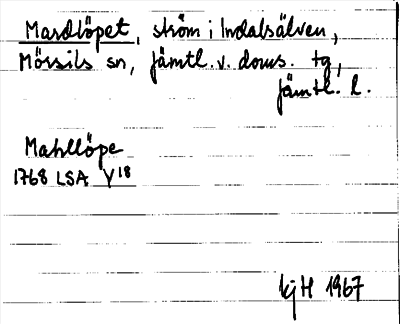 Mardlöpet, ström i Indalsälven,
Mörsils sn, Jämtl. v. doms. tg,
Jämtl. l.
Mahllöpe
1768 LSA Y18
kjH 1967